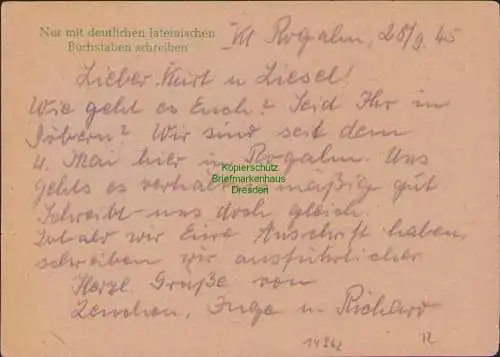 Nur mit deutlichen lateinischen
Buchstaben schreiben
Rogahn, 28/9. 45
Lieber Kurt u Liesel!
Wie geht es Euch? Seid Ihr in
Döbern? Wir sind seit dem
4. Mai hier in Rogahn. Uns
gehts es verhältnismäßig gut.
Schreibt uns doch gleich.
Sobald wir Eure Anschrift haben,
schreiben wir ausführlicher
Herzl. Grüße von
Lenchen, Inge u Richard
Kopierschutz
Briefmarkenhaus
Dresden